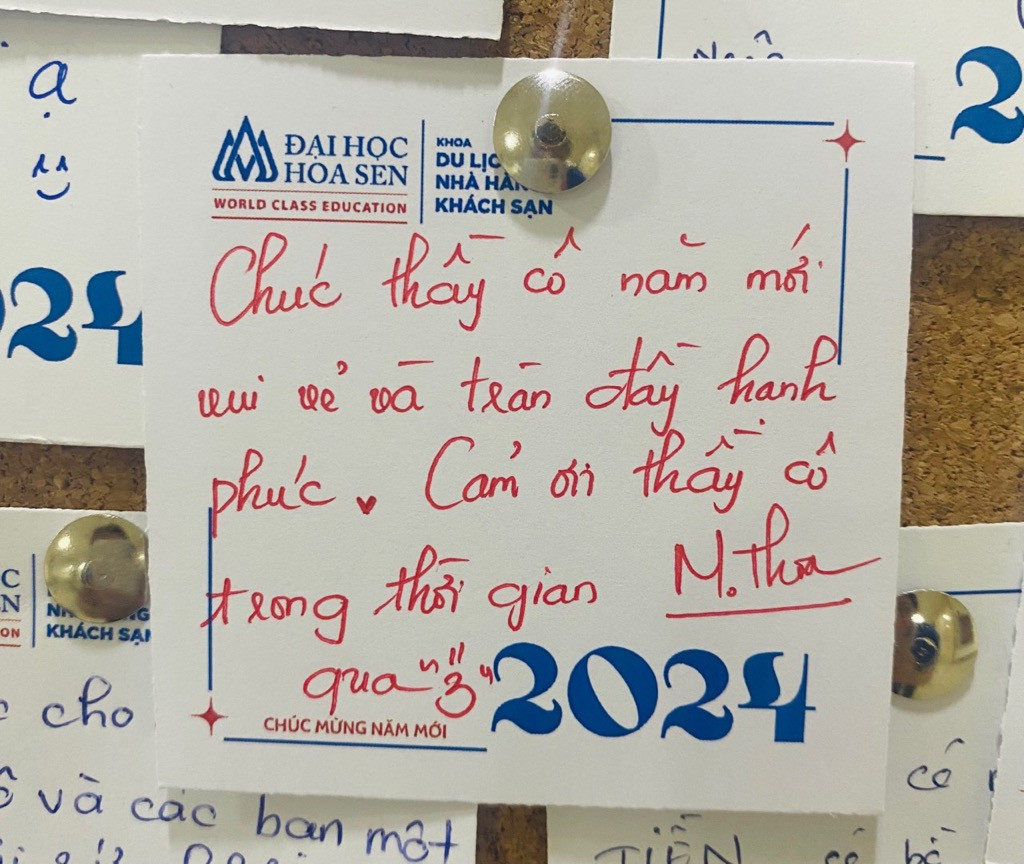 ĐẠI HỌC
HOA SEN
WORLD CLASS EDUCATION
KHOA
DU LỊC
NHÀ HÀN
KHÁCH SẠN
Chúc thầy cô năm mới
vui vẻ và tràn đầy hạnh
phúc. Cảm ơn thầy cô
trong thời gian M.Thoa
qua
CHÚC MỪNG NĂM MỚI
2024
ạ
024
2
C
N
ION
KHÁCH SẠ
cho
và các bạn một
có
TIỀN có